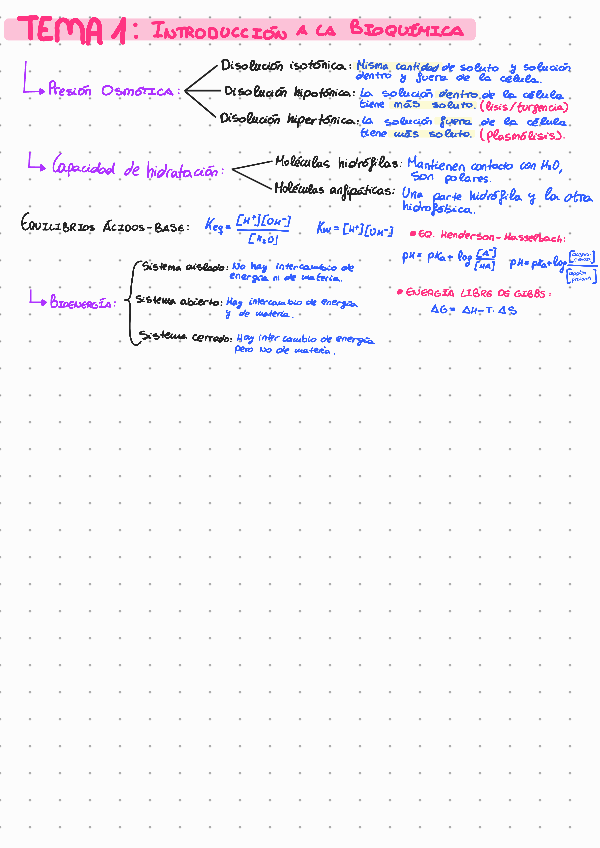 TEMA 1: INTRODUCCIÓN A LA BIOQUÍMICA
Presión Osmótica:
Disolución isotónica: Misma cantidad de soluto y solución
dentro y fuera de la célula.
Disolución hipotónica: La solución dentro de la célula
tiene más soluto. (lisis/turgencia)
Disolución hipertónica: La solución fuera de la célula
tiene más soluto. (plasmólisis).
Capacidad de hidratación:
Moléculas hidrófilas: Mantienen contacto con H₂O,
son polares.
Moléculas anfipáticas: Una parte hidrófila y la otra
hidrofóbica.
EQUILIBRIOS ÁCIDOS-BASE: Keq = [H⁺][OH⁻] / [H₂O] Kw = [H⁺][OH⁻]
• EQ. Henderson-Hasselbach:
pH = pKa + log [A⁻] / [HA] pH = pKa + log
BIOENERGÍA:
Sistema aislado: No hay intercambio de
energía ni de materia.
Sistema abierto: Hay intercambio de energía
y de materia.
Sistema cerrado: Hay intercambio de energía
pero no de materia.
• ENERGÍA LIBRE DE GIBBS:
ΔG = ΔH - T · ΔS